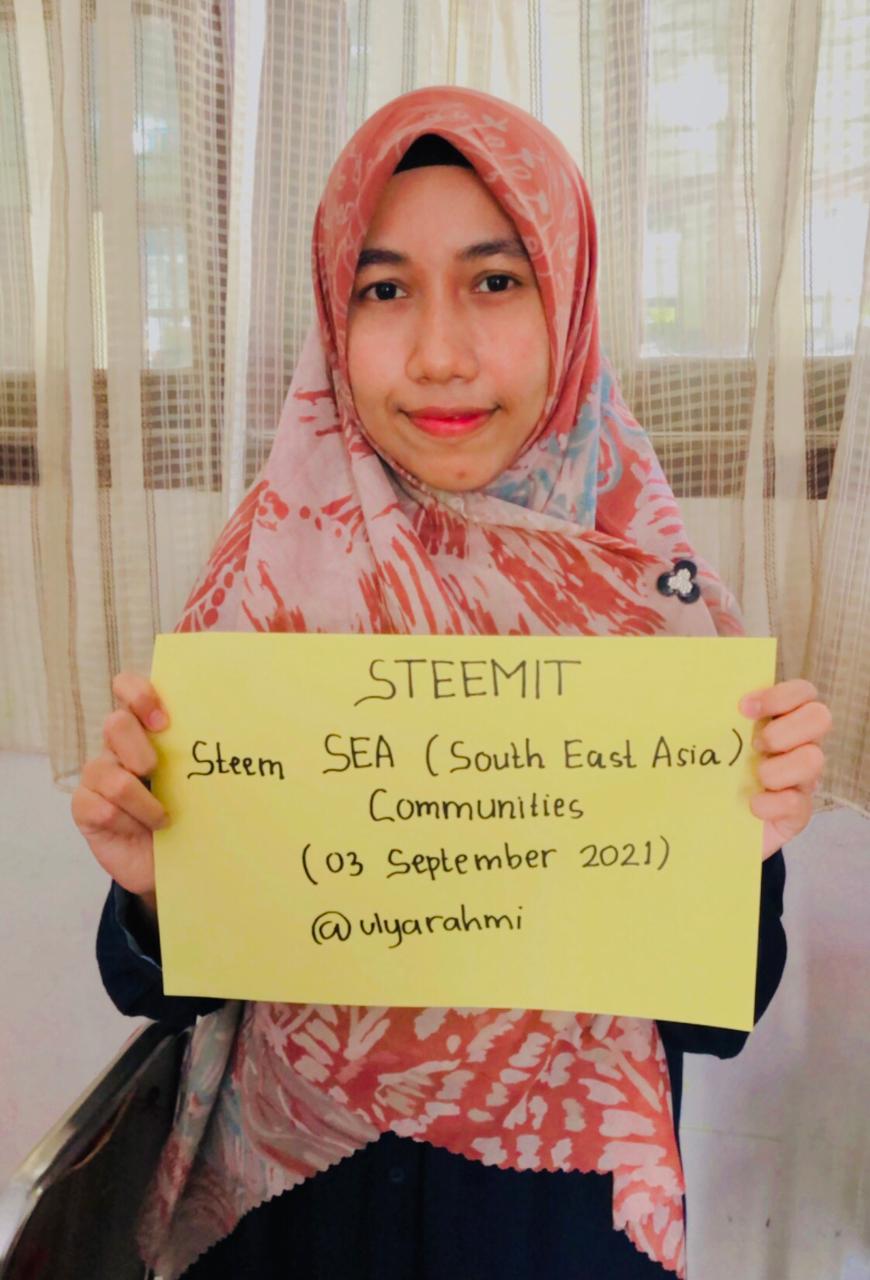 STEEMIT
Steem SEA (South East Asia)
Communities
(03 September 2021)
@ulyarahmi